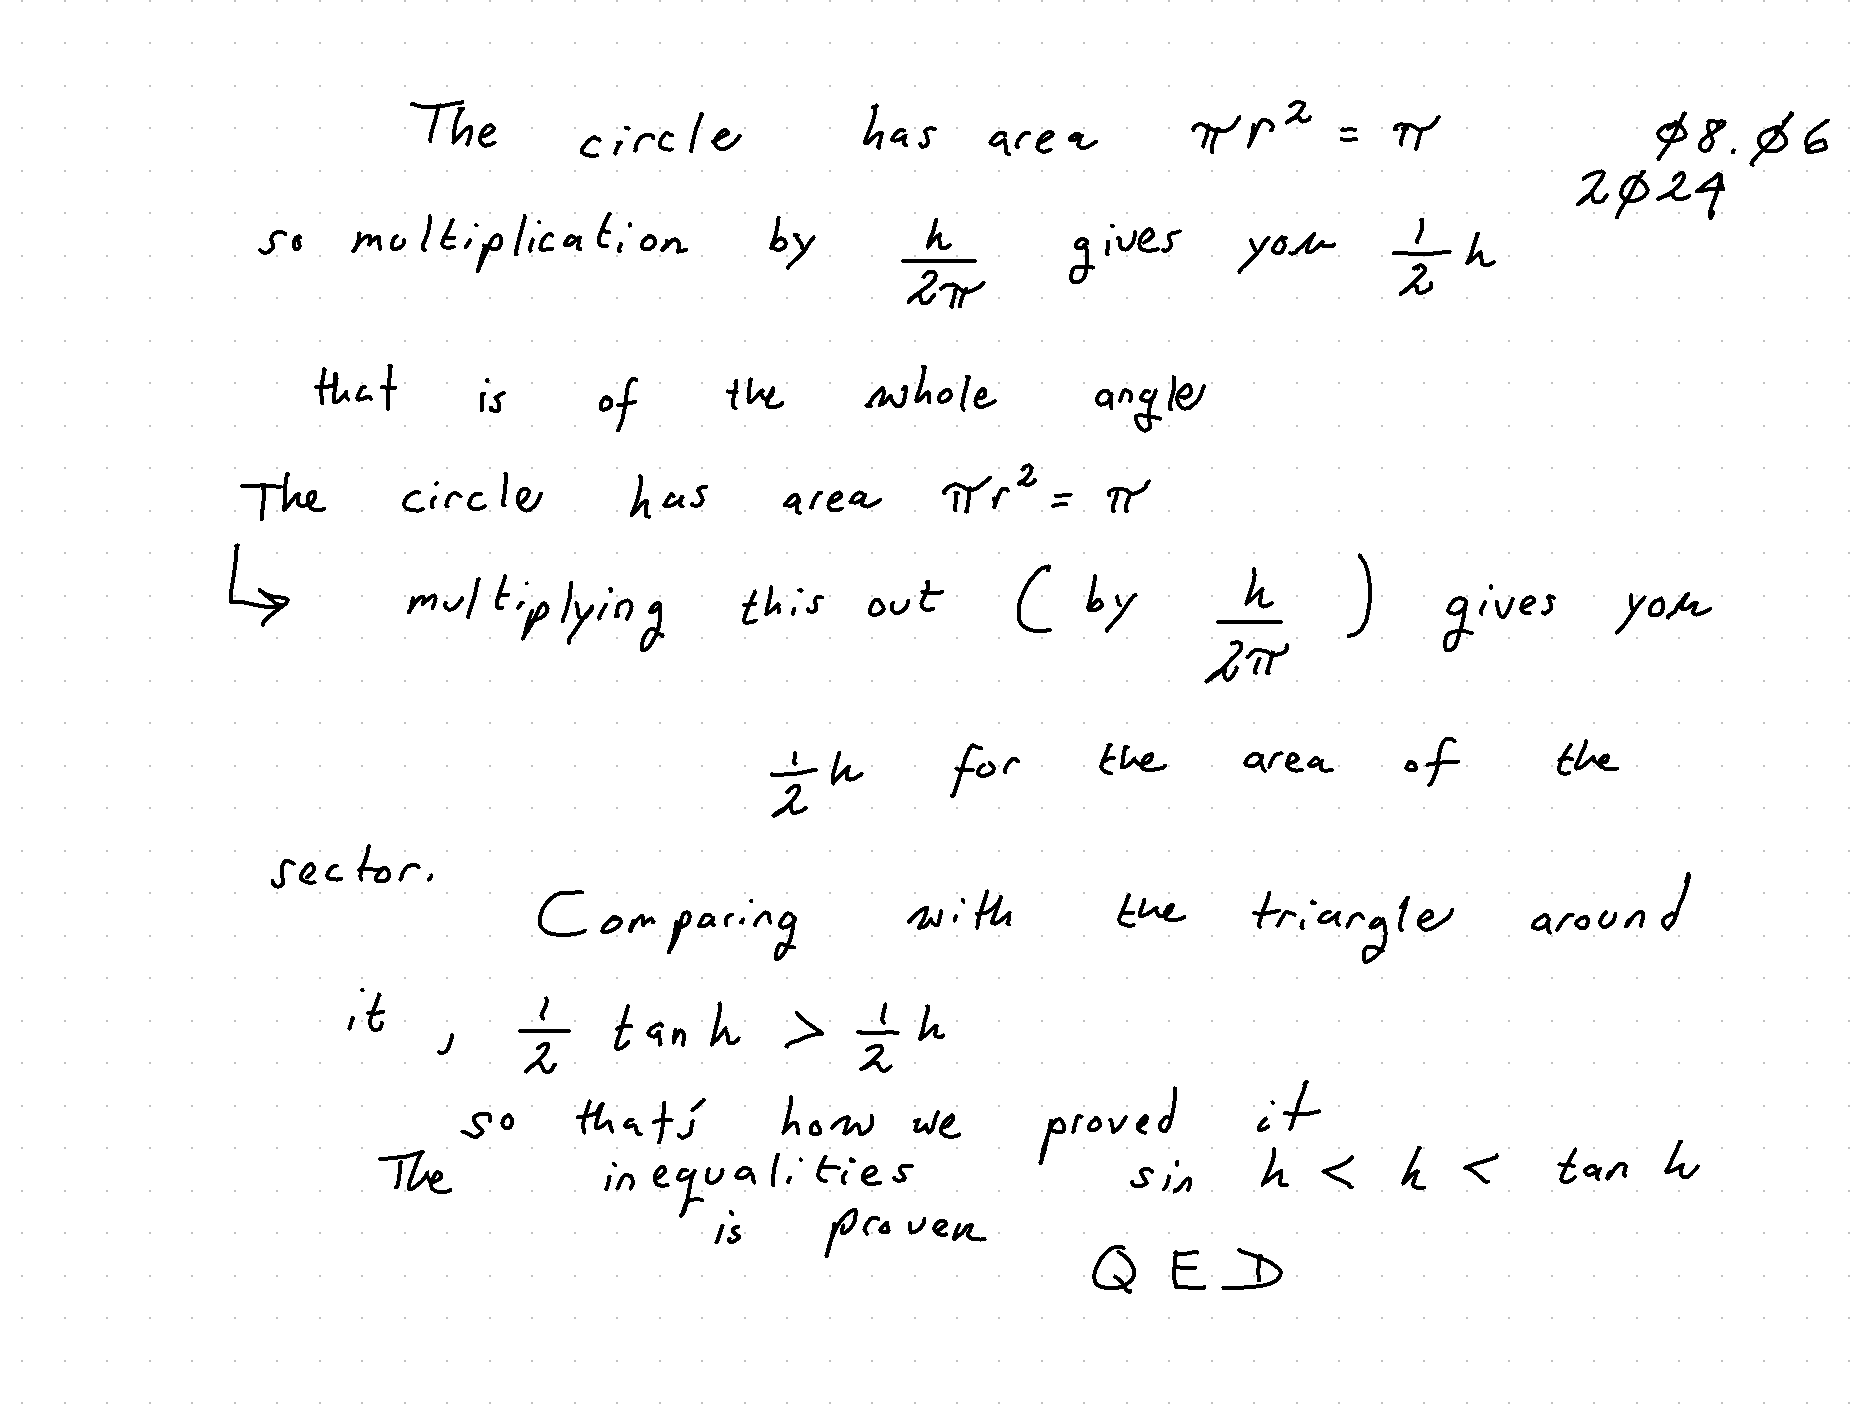 The circle has area πr² = π ø8.ø6
2ø24
so multiplication by h/2π gives you 1/2 h
that is of the whole angle
The circle has area πr² = π
↳ multiplying this out ( by h/2π ) gives you
1/2 h for the area of the
sector.
Comparing with the triangle around
it , 1/2 tan h > 1/2 h
so that's how we proved it
The inequalities sin h < h < tan h
is proven
QED